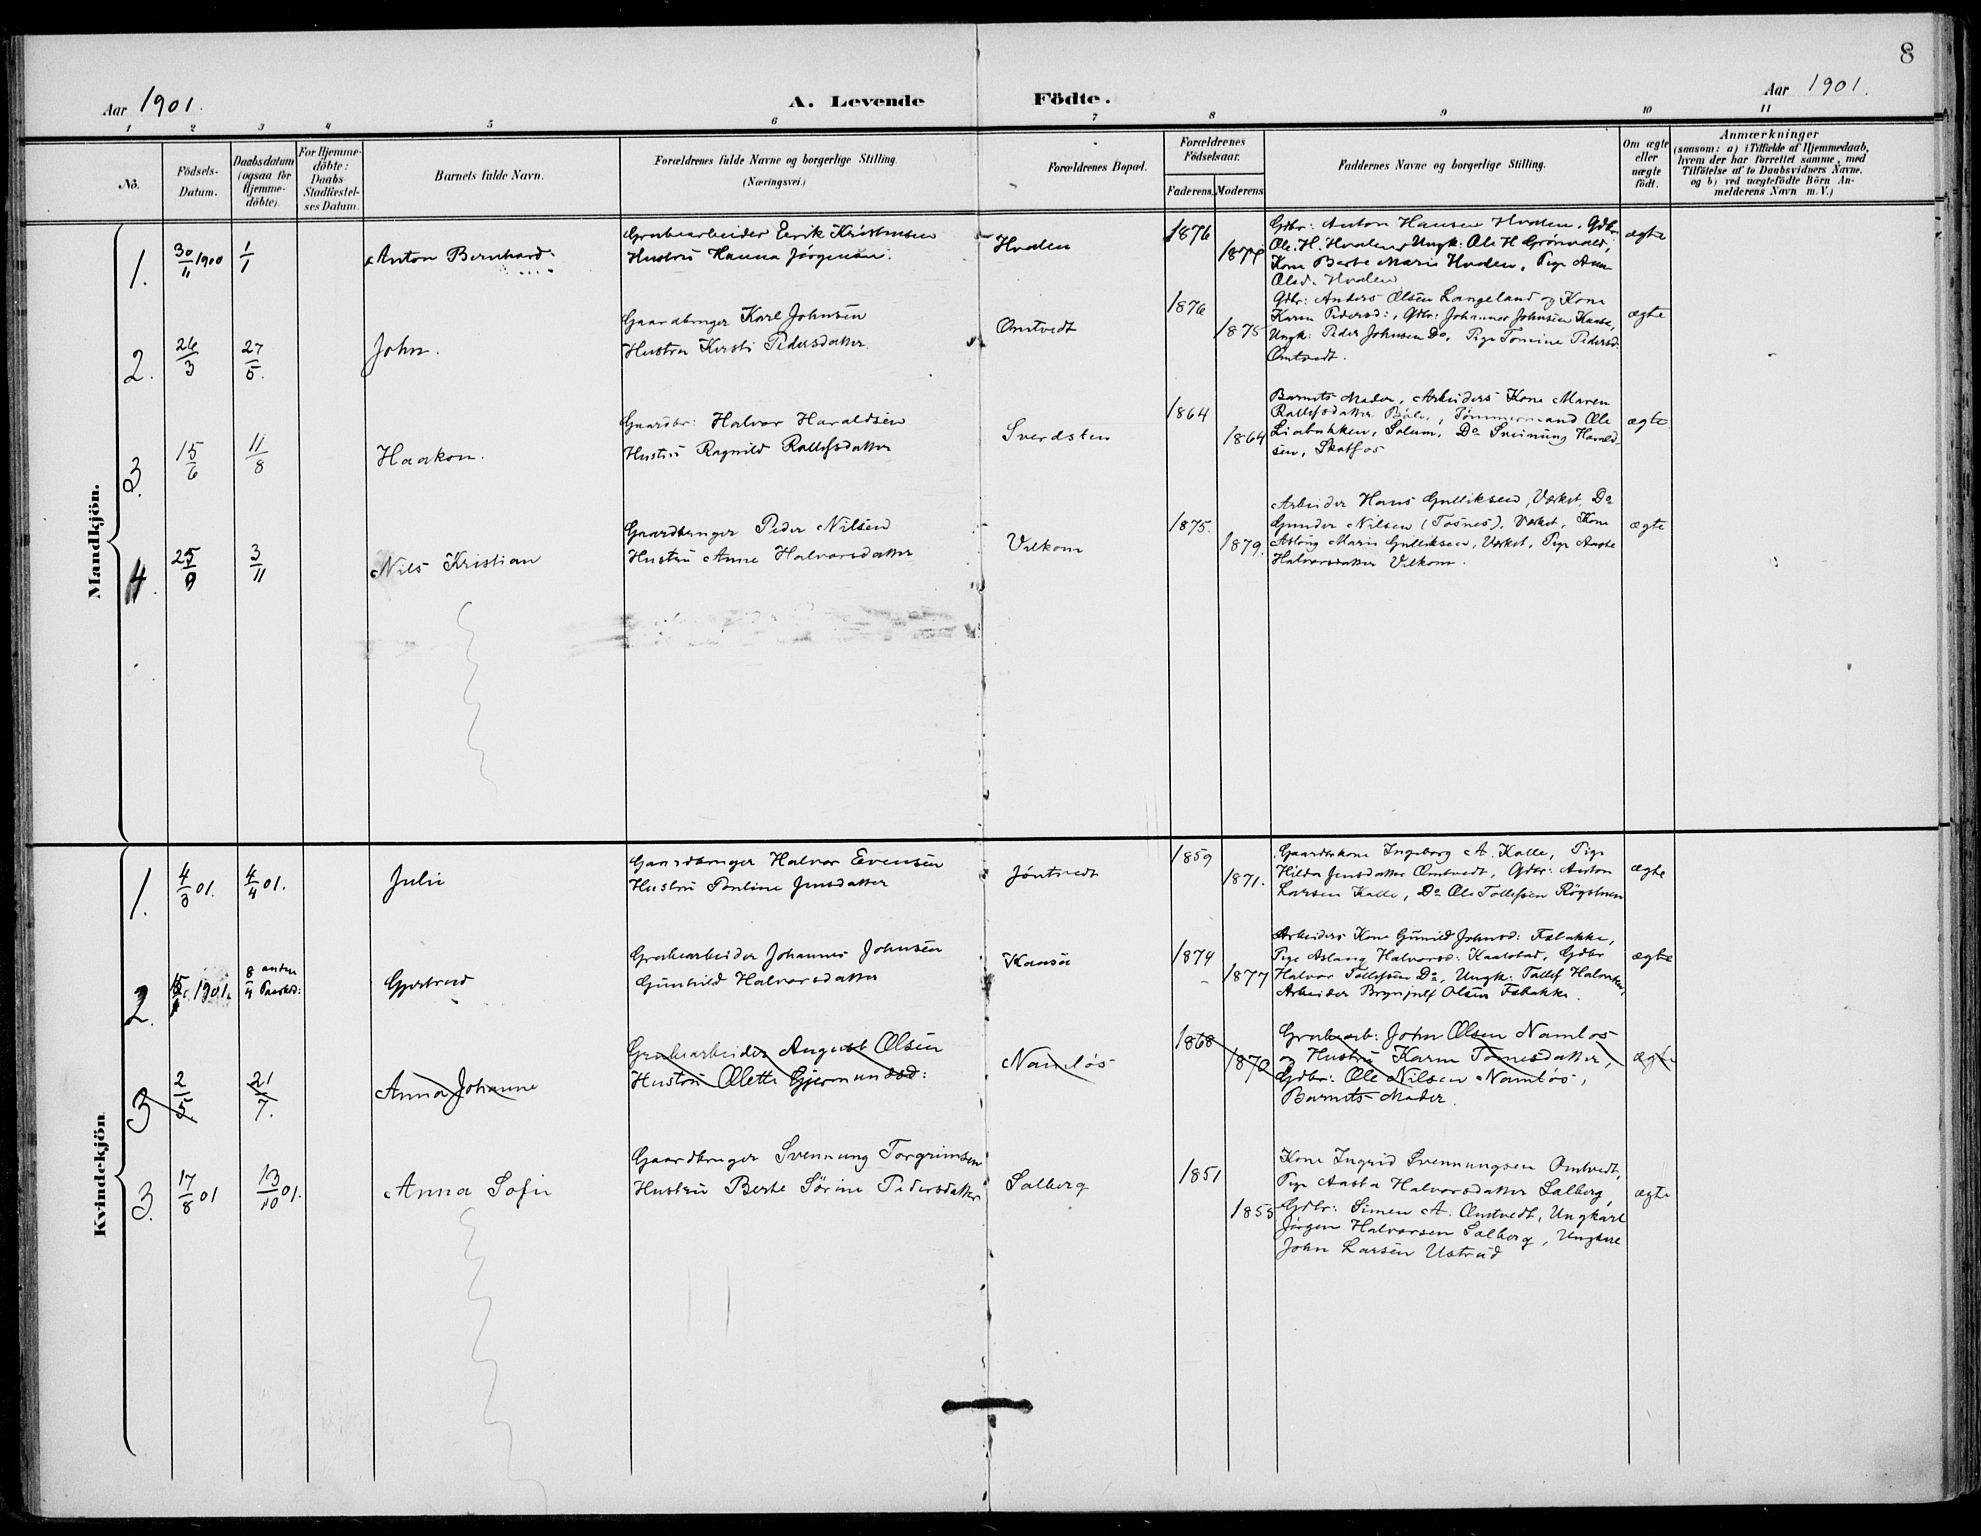 8
Aar 1901.
A. Levende Födte.
Aar 1901.
1 2 3 4 5 6 7 8 9 10 11
No.
Födsels-
Datum.
Daabsdatum
(ogsaa for
Hjemme-
döbte).
For Hjemme-
döbte:
Daabs-
Stadfæstel-
ses Datum.
Barnets fulde Navn.
Forældrenes fulde Navne og borgerlige Stilling
(Næringsvei.)
Forældrenes Bopæl.
Forældrenes
Födselsaar.
Faderens. Moderens.
Faddernes Navne og borgerlige Stilling.
Om ægte
eller
uægte
födt.
Anmærkninger
(saasom: a) i Tilfælde af Hjemmedaab,
hvem der har forrettet samme, med
Tilföielse af to Daabsvidners Navne,
og b) ved uægtefödte Börn An-
melderens Navn m. V.)
Mandkjön.
1. 30/11 1900 1/1
Anton Bernhard
Grubearbeider Eerik Kristensen
Hustru Hanna Jørgensen.
Hvalen
1876
Gdbr: Anton Hansen Hvalen, Gdbr
Ole. H. Hvalen, Ungk: Ole H Grönvold,
Kone Berte Marie Hvalen, Pige
Olsd. Hvalen
ægte
2. 26/3 27/5.
John.
Gaardbruger Karl Johnsen
Hustru Kersti Pedersdatter
Omtvedt
1876
1875
Gdbr: Anders Olsen Langeland og Kone
Karen Pedersd:, Gdbr: Johannes Johnsen Kaasa,
Ungk: Peder Johnsen Do, Pige Tomine Pedersd:
Omtvedt.
ægte
3. 15/6 11/8
Haakon.
Gaardbr: Halvor Haraldsen
Hustru Ragnild Rollefsdatter
Sverdsten
1864
1864
Barnets Moder, Arbeiders Kone Maren
Rollefsdatter Böle, Tömmermand Ole
Liabakken, Solum, Do Sveinung Harald-
sen, Skotfos
ægte
4. 25/9 3/11
Nils Kristian
Gaardbruger Peder Nilsen
Hustru Anne Halvorsdatter
Vilkom
1875.
1879.
Arbeider Hans Gulliksen, Værket, Do
Gunder Nilsen (Tosnes), Værket, Kone
Aslaug Marie Gulliksen, Værket, Pige Aaste
Halvorsdatter Vilkom.
ægte
Kvindekjön
1. 4/3 01. 4/4 01.
Julie
Gaardbruger Halvor Evensen
Hustru Pauline Jensdatter
Jöntvedt
1859
1871.
Gaardbrkone Ingeborg A. Kalle, Pige
Hilda Jensdatter Omtvedt, Gdbr: Anton
Larsen Kalle, Do Ole Tollefsen
ægte
2. 1901. 8/4 anden Paaskd:
Gjertrud
Grubearbeider Johannes Johnsen
Gunhild Halvorsdatter
Kaasa
1874
1877
Arbeiders Kone Gunild Johnsd:
Pige Aslaug Halvorsd: Kaalstad, Gdbr
Halvor Tollefsen Do, Ungk: Tollef Halvorsen,
Arbeider Brynjulf Olsen
ægte
3 2/5. 21/7.
Anna Johanne
Grubearbeider August Olsen
Hustru Olette Gjermundsd:
Namlös
1868
1870
Grubearb: John Olsen Namlos
og Hustru Karen Tomesdatter,
Gdbr: Ole Nilsen Namlös,
Barnets Moder.
ægte
3. 17/8 01 13/10 01.
Anna Sofie
Gaardbruger Svennung Torgrimsen
Hustru Berte Sörine Pedersdatter
Salberg
1851
1855
Kone Ingrid Svennungsen Omtvedt,
Pige Aasta Halvorsdatter Salberg,
Gdbr: Simen A. Omtvedt, Ungkarl
Jörgen Halvorsen Salberg, Ungkarl
John Larsen Ustrud
ægte